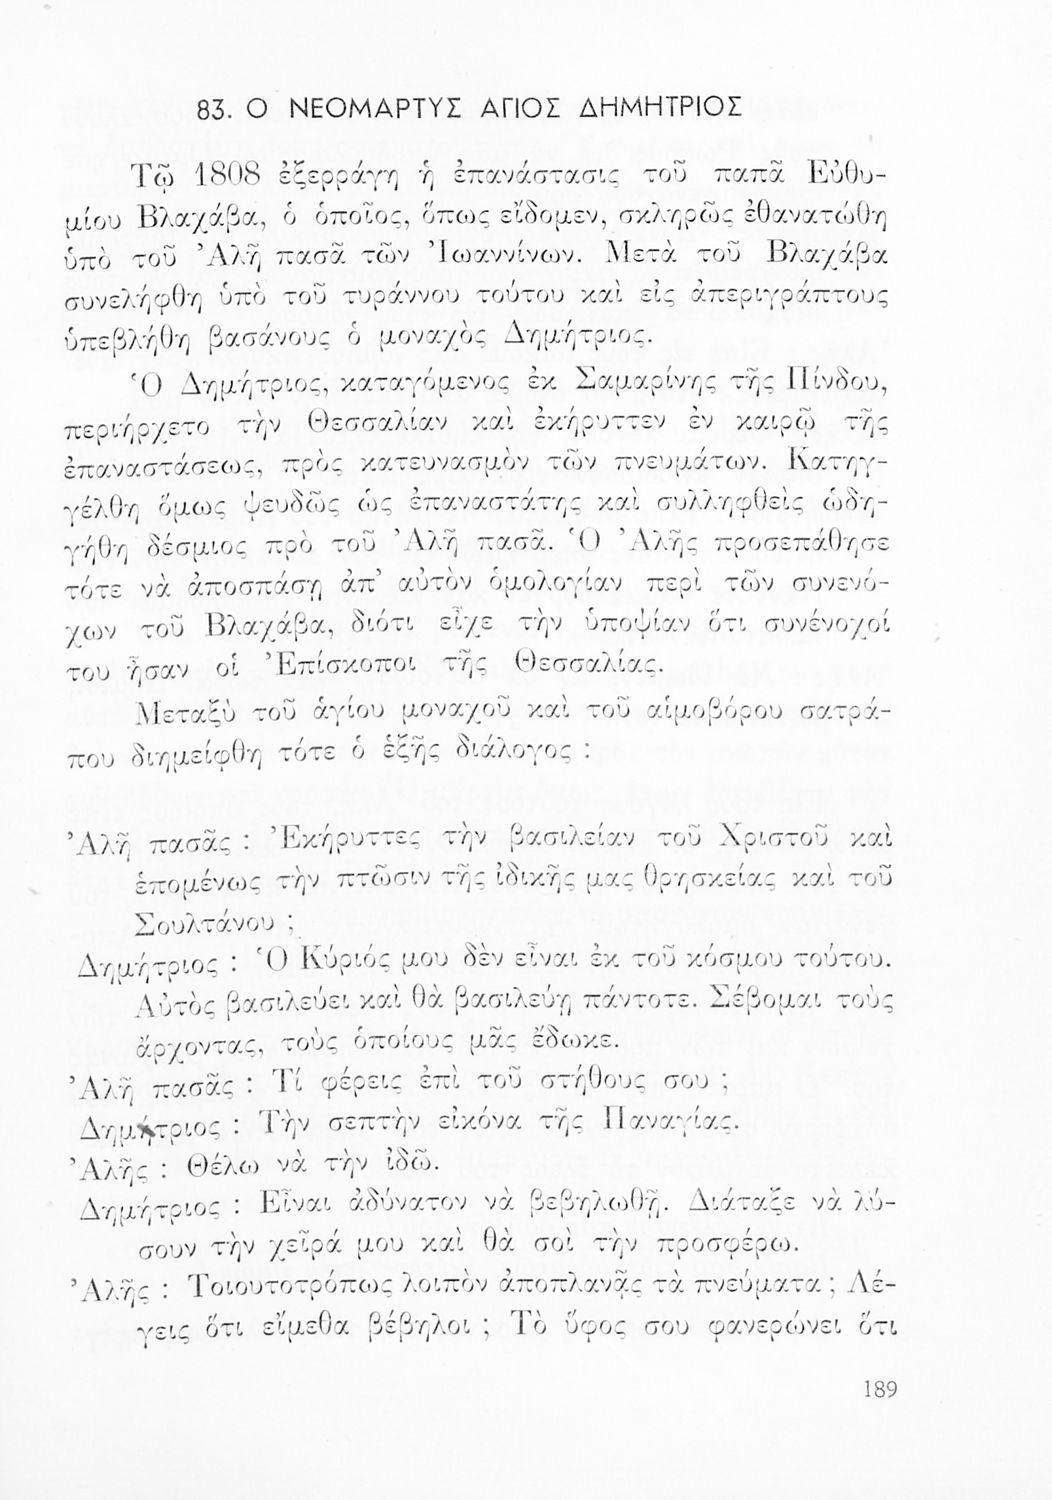 83. Ο ΝΕΟΜΑΡΤΥΣ ΑΓΙΟΣ ΔΗΜΗΤΡΙΟΣ
Τῷ 1808 ἐξερράγη ἡ ἐπανάστασις τοῦ παπᾶ Εὐθυ-
μίου Βλαχάβα, ὁ ὁποῖος, ὅπως εἴδομεν, σκληρῶς ἐθανατώθη
ὑπὸ τοῦ Ἀλῆ πασᾶ τῶν Ἰωαννίνων. Μετὰ τοῦ Βλαχάβα
συνελήφθη ὑπὸ τοῦ τυράννου τούτου καὶ εἰς ἀπεριγράπτους
ὑπεβλήθη βασάνους ὁ μοναχὸς Δημήτριος.
Ὁ Δημήτριος, καταγόμενος ἐκ Σαμαρίνης τῆς Πίνδου,
περιήρχετο τὴν Θεσσαλίαν καὶ ἐκήρυττεν ἐν καιρῷ τῆς
ἐπαναστάσεως, πρὸς κατευνασμὸν τῶν πνευμάτων. Κατηγ-
γέλθη ὅμως ψευδῶς ὡς ἐπαναστάτης καὶ συλληφθεὶς ὡδη-
γήθη δέσμιος πρὸ τοῦ Ἀλῆ πασᾶ. Ὁ Ἀλῆς προσεπάθησε
τότε νὰ ἀποσπάσῃ ἀπ’ αὐτὸν ὁμολογίαν περὶ τῶν συνενό-
χων τοῦ Βλαχάβα, διότι εἶχε τὴν ὑποψίαν ὅτι συνένοχοί
του ἦσαν οἱ Ἐπίσκοποι τῆς Θεσσαλίας.
Μεταξὺ τοῦ ἁγίου μοναχοῦ καὶ τοῦ αἱμοβόρου σατρά-
που διημείφθη τότε ὁ ἑξῆς διάλογος :
Ἀλῆ πασᾶς : Ἐκήρυττες τὴν βασιλείαν τοῦ Χριστοῦ καὶ
ἑπομένως τὴν πτῶσιν τῆς ἰδικῆς μας θρησκείας καὶ τοῦ
Σουλτάνου ;
Δημήτριος : Ὁ Κύριός μου δὲν εἶναι ἐκ τοῦ κόσμου τούτου.
Αὐτὸς βασιλεύει καὶ θὰ βασιλεύῃ πάντοτε. Σέβομαι τοὺς
ἄρχοντας, τοὺς ὁποίους μᾶς ἔδωκε.
Ἀλῆ πασᾶς : Τί φέρεις ἐπὶ τοῦ στήθους σου ;
Δημήτριος : Τὴν σεπτὴν εἰκόνα τῆς Παναγίας.
Ἀλῆς : Θέλω νὰ τὴν ἰδῶ.
Δημήτριος : Εἶναι ἀδύνατον νὰ βεβηλωθῇ. Διάταξε νὰ λύ-
σουν τὴν χεῖρά μου καὶ θὰ σοὶ τὴν προσφέρω.
Ἀλῆς : Τοιουτοτρόπως λοιπὸν ἀποπλανᾷς τὰ πνεύματα ; Λέ-
γεις ὅτι εἴμεθα βέβηλοι ; Τὸ ὕφος σου φανερώνει ὅτι
189